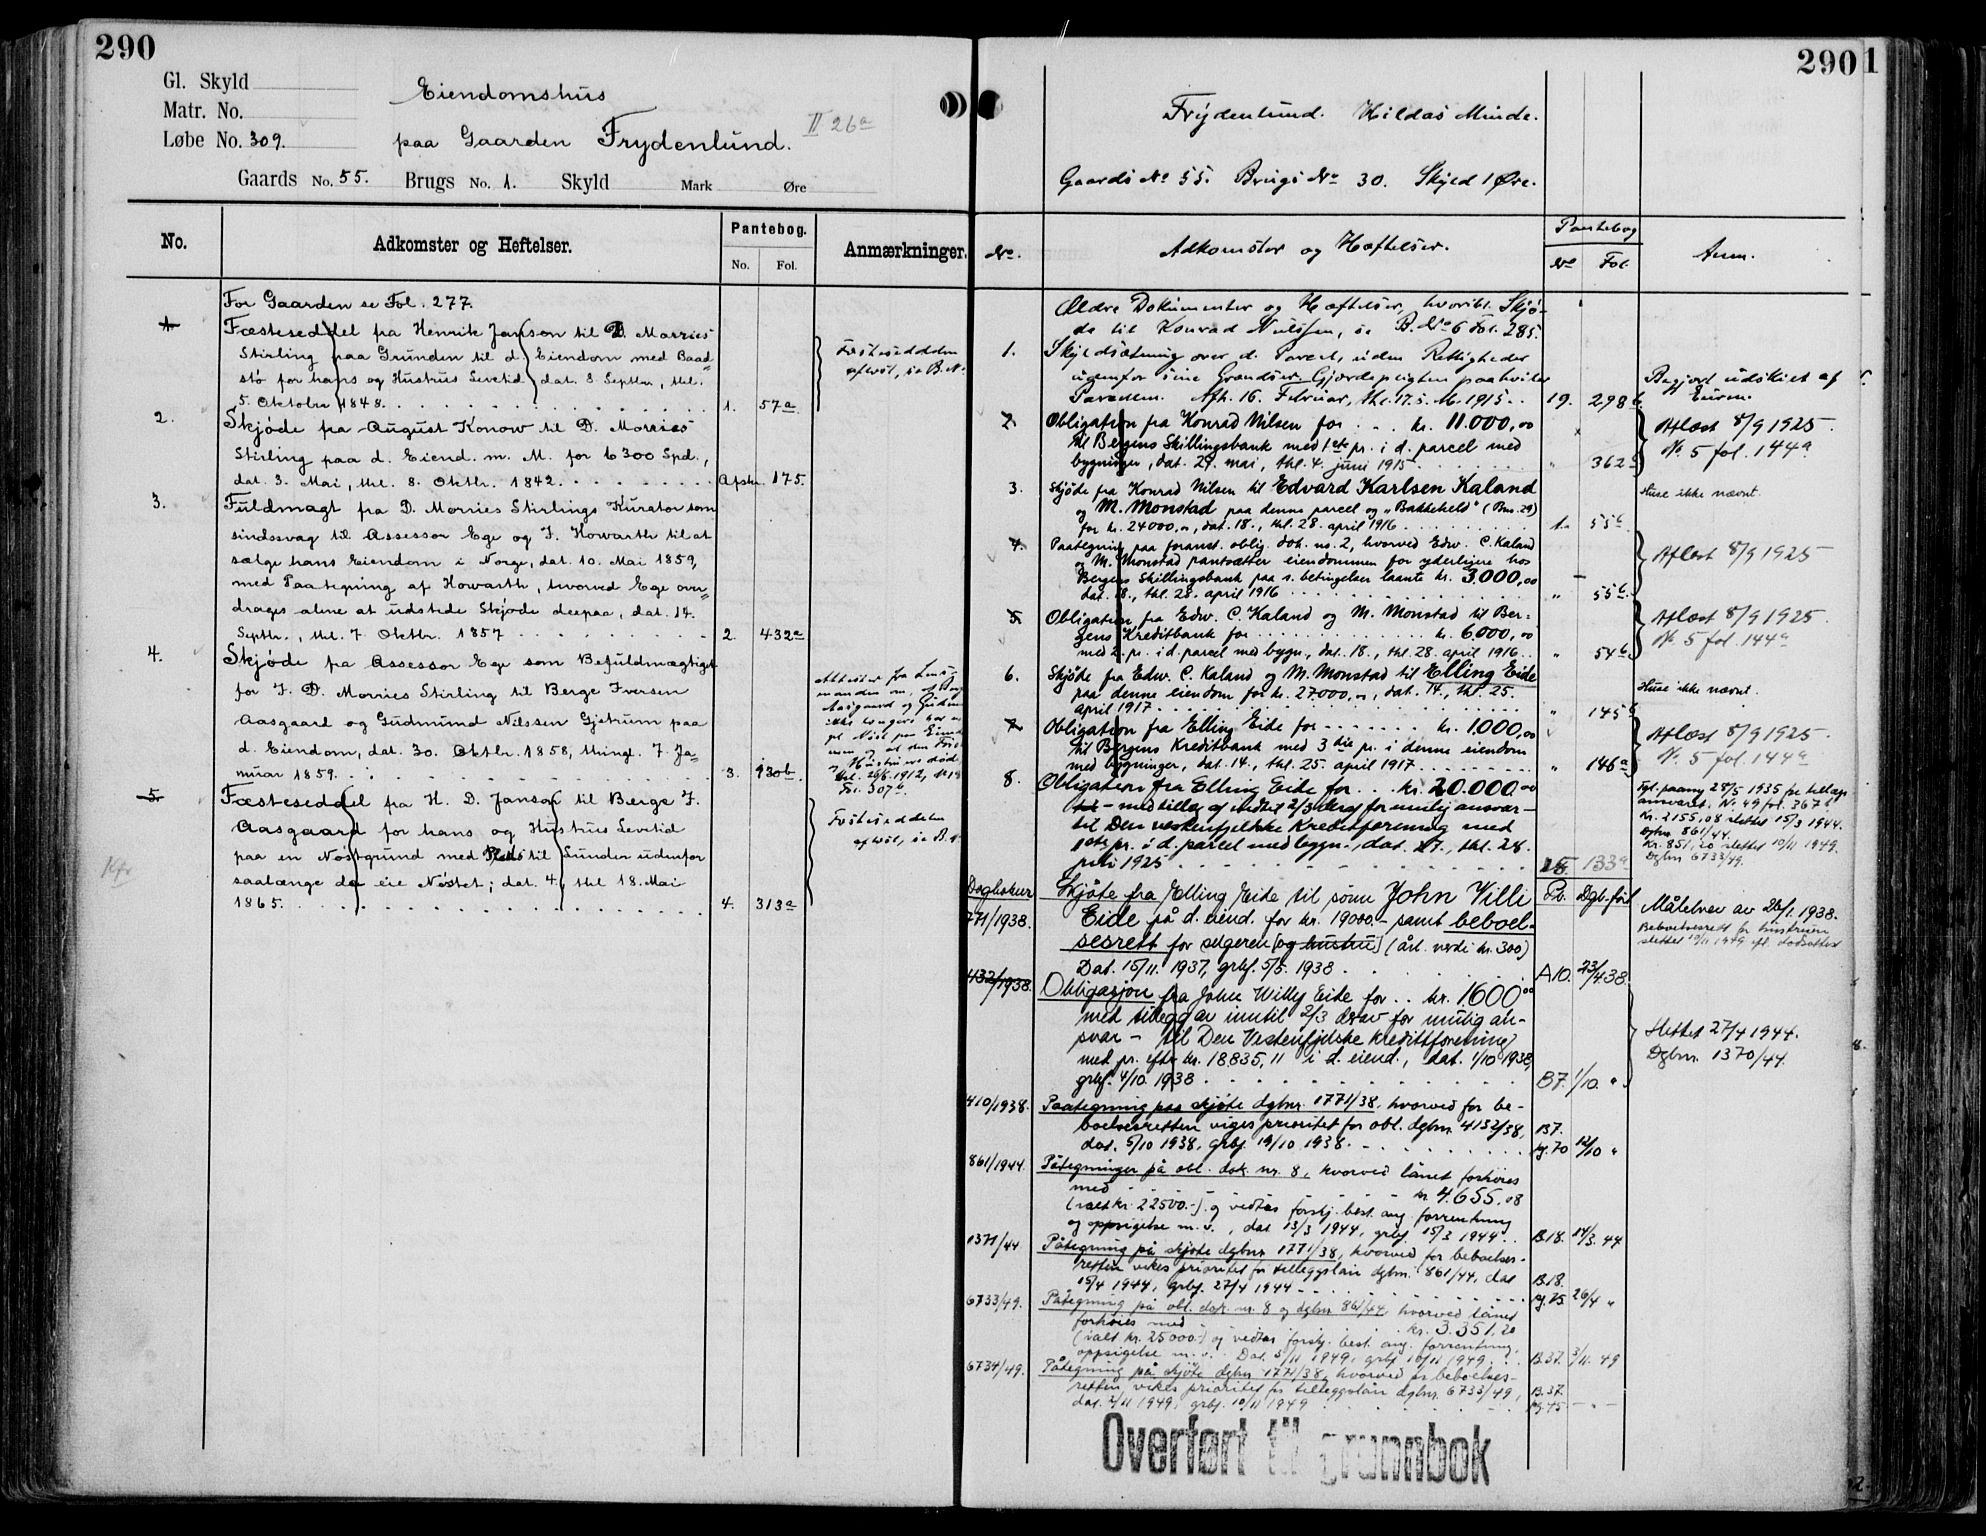 290
Gl. Skyld
Matr. No.
Løbe No. 309.
Eiendomshus
paa Gaarden Frydenlund.
II 26a
Gaards No. 55. Brugs No. 1. Skyld Mark Øre
No. Adkomster og Heftelser. Pantebog. No. Fol. Anmærkninger.
For Gaarden se Fol. 277.
1. Fæsteseddel fra Henrik Janson til D. Morries
Stirling paa Grunden til d. Eiendom med Baad=
stø for hans og Hustrus Levetid dat. 8 Septbr., thl.
5. Oktober 1848. 1. 57a
Fæstesedelen
aflæst, se B. N.
2. Skjøde fra August Konow til D. Morries
Stirling paa d. Eiend. m. M. for 6300 Spd.,
dat. 3. Mai, thl. 8. Oktbr. 1842. Apskr. 175.
3. Fuldmagt fra D. Morries Stirlings Kurator som
sindssvag til Assessor Ege og J. Howarth til at
sælge hans Eiendom i Norge, dat. 10. Mai 1859,
med Paategning af Howarth, hvorved Ege over=
drages alene at udstede Skjøde derpaa, dat. 14.
Septbr., thl. 7. Oktbr. 1857 2. 432a
4. Skjøde fra Assessor Ege som Befuldmægtiget
for J. D. Morries Stirling til Berge Iversen
Aasgaard og Gudmund Nilssen Gjstrum paa
d. Eiendom, dat. 30. Oktbr. 1858, thingl. 7. Ja-
nuar 1859. 3. 930b
Attester fra Lens
manden om, at
Aasgaard og Gudm
ikke længere har
Nøst paa Eiend
men og at den
Hustrues død
thl. 26/8 1912,
Fol. 307b.
5. Fæsteseddel fra H. D. Janson til Berge I.
Aasgaard for hans og Hustrus Levetid
paa en Nøstgrund med Plads til Lunder udenfor
saalænge de eie Nøstet; dat. 4. thl. 18. Mai
1865. 4. 313a
Fæstesedelen
aflæst, se B.
Kfr
2901
Frydenlund. Hildas Minde.
Gaards No 55. Brugs No 30. Skyld 1 Øre.
No. Adkomster og Hæftelser. Pantebog No Fol. Anm.
Ældre Dokumenter og Hæftelser, hvoribl. Skjø-
de til Konrad Nielssen, se B. No 6 Fol. 285.
1. Skyldsætning over d. Parcel, uden Rettigheder
udenfor sine Grændser. Gjerdepligten paahviler
Parcelen. Afh. 16. Februar, thl. 17. s. M. 1915. 19. 298b
Begjært udskilet af
Eieren.
2. Obligation fra Konrad Nilsen for kr. 11.000,00
til Bergens Skillingsbank med 1ste pr. i d. parcel med
bygninger, dat. 29. mai, thl. 4. juni 1915 " 362b
Aflæst 8/9 1925
No. 5 fol. 144a
3. Skjøde fra Konrad Nilsen til Edvard Karlsen Kaland
og M. Monstad paa denne parcel og "Bakkeheld" (Bno. 29)
for kr. 24000,00, dat. 18., thl. 28. april 1916 1. 55b
Huse ikke nævnt.
4. Paategning paa foranst. oblig. dok. no. 2, hvorved Edw. C. Kaland
og M. Monstad pantsætter eiendommen for yderligere hos
Bergens Skillingsbank paa s. betingelser laante kr. 3.000,00
dat. 18., thl. 28. april 1916 " 55b
Aflæst 8/9 1925
5. Obligation fra Edw. C. Kaland og M. Monstad til Ber-
gens Kreditbank for kr. 6.000,00
med 2. pr. i d. parcel med bygn., dat. 18., thl. 28. april 1916. " 54b
Aflæst 8/9 1925.
No. 5 fol. 144a
6. Skjøde fra Edw. C. Kaland og M. Monstad til Elling Eide
paa denne eiendom for kr. 27000,00, dat. 14., thl. 25.
april 1917 " 145b
Huse ikke nævnt.
7. Obligation fra Elling Eide for kr. 1.000,00
til Bergens Kreditbank med 3die pr. i denne eiendom
med bygninger, dat. 14., thl. 25. april 1917 " 146a
Aflæst 8/9 1925.
No. 5 fol. 144a
8. Obligation fra Elling Eide for kr. 20.000.00
– med tillæg af indtil 2/3 deraf for mulig ansvar –
til Den vestenfjelske Kreditforening med
1ste pr. i d. parcel med bygn., dat. 27., thl. 28.
juli 1925 133a
Tgl. paateg 28/5 1935 for tillægs
ansvaret. Nr. 49 fol. 367b
kr. 2155,08 slettet 15/3 1944.
Dgbnr 861/44.
kr. 851,20 slettet 10/11 1949.
Dgbnr 6733/49.
Dagboknr Pb. Dgb.ført
771/1938. Skjøte fra Elling Eide til sønn John Villi
Eide på d. eiend. for kr. 19000.– samt beboel-
sesrett for selgeren [og hustru] (årl. verdi kr. 300)
Dat. 15/11. 1937, grbf. 5/5. 1938. A10. 23/4.38.
Målebrev av 28/1.1938.
Beboelsesrett for hustruen
slettet 10/11 1949 ifl. dødsattest
4132/1938. Obligasjon fra John Willy Eide for kr. 1600.00
med tillegg av inntil 2/3 derav for mulig an-
svar – til Den Vestenfjelske Kredittforening
med pr. efter kr. 18.835,11 i d. eiend., dat. 1/10 1938,
grbf. 4/10. 1938 B7. 1/10. "
Slettet 27/4 1944.
Dgbnr. 1370/44.
410/1938. Paategning paa skjøte dgbnr. 1771/38, hvorved for be-
boelsesretten viges prioritet for obl. dgbnr. 4132/38,
dat. 5/10 1938, grbf. 19/10 1938. B7. pg. 70 12/10 "
861/1944. Påtegninger på obl. dok. nr. 8, hvorved lånet forhøies
med kr. 4.655,08
(ialt kr. 22500.–) og vedtas forskj. best. ang. forrentning
og oppsigelse m.v., dat. 13/3 1944, grbf. 15/3 1944. B.18. 14/3. 44
1371/44. Påtegning på skjøte dgbnr 1771/38, hvorved for beboelses-
retten vikes prioritet for tilleggslån dgbnr. 861/44, dat
15/4 1944, grbf. 27/4 1944 B.18. pg. 75 26/4 "
6733/49. Påtegning på obl. dok. nr. 8 og dgbnr 861/44, hvorved lånet
forhøies med kr. 3.351,20
(ialt kr. 25000.–) og vedtas forskj. best. ang. forrentning,
oppsigelse m.v. Dat. 5/11 1949, grbf. 10/11 1949. B.37. 3/11. 49
6734/49. Påtegning på skjøte dgbnr 1771/38, hvorved for beboelses-
retten vikes prioritet for tilleggslån dgbnr. 6733/49,
dat. 2/11 1949, grbf. 10/11 1949 B.37. pg 45 – " –
Overført til grunnbok